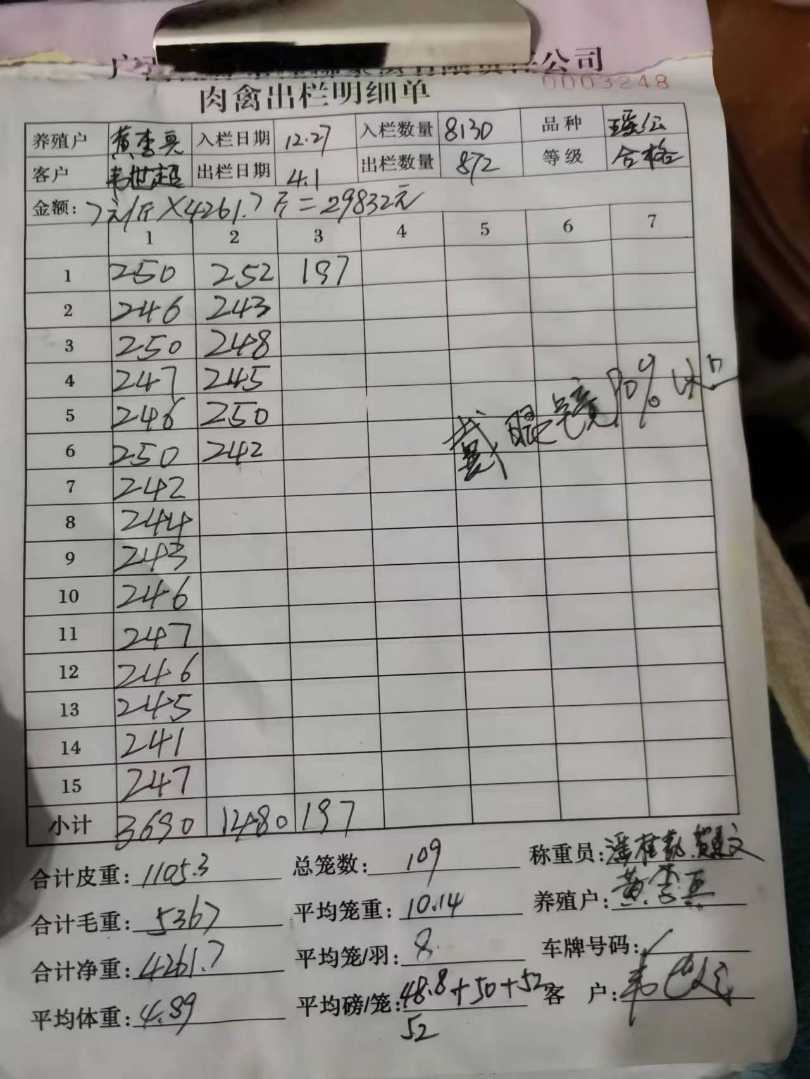 公司
0003248
肉禽出栏明细单
养殖户 黄李亮 入栏日期 12.27 入栏数量 8130 品种 瑶公
客户 韦世超 出栏日期 4.1 出栏数量 872 等级 合格
金额: 7元/斤×4261.7斤=29832元
1 2 3 4 5 6 7
1 250 252 197
2 246 243
3 250 248
4 247 245
5 246 250
6 250 242
戴眼镜90%以上
7 242
8 244
9 243
10 246
11 247
12 246
13 245
14 241
15 247
小计 3690 1480 197
合计皮重: 1105.3 总笼数: 109 称重员:
合计毛重: 5367 平均笼重: 10.14 养殖户: 黄李亮
合计净重: 4261.7 平均笼/羽: 8 车牌号码: ✓
平均体重: 4.89 平均磅/笼: 48.8+50+52 客户:
52